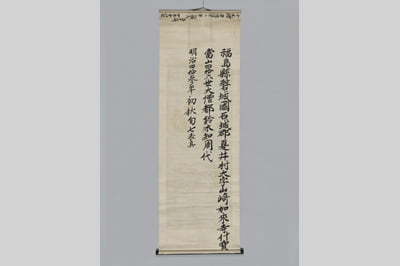 福島縣磐城國石城郡夏井村大字山崎如來寺什寳
當山四拾八世大僧都鈴木知周代
明治四拾參年初秋旬七表具